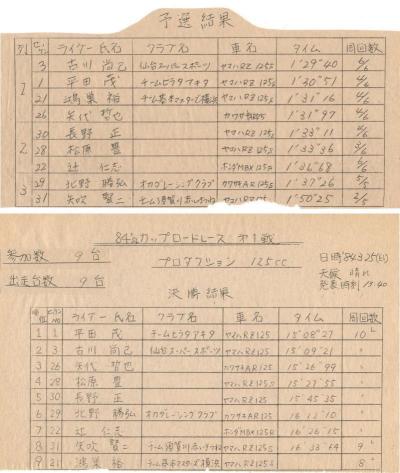 予選結果
列 ゼッケン ライダー氏名 クラブ名 車名 タイム 周回数
3 古川 尚己 仙台スーパースポーツ ヤマハRZ125 1'29"40 6/6
1 1 平田 茂 チームヒラタアキタ ヤマハRZ125 1'30"51 4/6
21 鴻巣 裕 ヤマハRZ125 1'31"16 4/6
26 矢代 哲也 1'31"97 4/6
30 長野 正 ヤマハRZ125 1'33"11 4/6
2 28 松原 豊 ヤマハRZ125 1'33"36
22 辻 仁志 ホンダMBX125 1'36"68
29 北野 勝弘 オカグレーシングクラブ カワサキAR125 1'37"26
3 31 矢吹 賢二 ヤマハRZ125 1'50"25
カップロードレース 第1戦
参加数 9台
プロダクション 125cc
日時'84.3.25(日)
出走台数 9台
天候 晴れ
発表時刻 15:40
決勝結果
順位 ゼッケンNO ライダー氏名 クラブ名 車名 タイム 周回数
1 1 平田 茂 チームヒラタアキタ ヤマハRZ125 15'08"27 10L
2 3 古川 尚己 仙台スーパースポーツ ヤマハRZ125 15'09"21 〃
3 26 矢代 哲也 カワサキAR125 15'26"99 〃
4 28 松原 豊 ヤマハRZ125 15'27"55 〃
5 30 長野 正 ヤマハRZ125 15'45"35 〃
6 29 北野 勝弘 オカグレーシングクラブ カワサキAR125 16'12"10 〃
7 22 辻 仁志 ホンダMBX125 16'26"15 〃
8 31 矢吹 賢二 ヤマハRZ125 16'33"64 9L
9 21 鴻巣 裕 ヤマハRZ125 8L